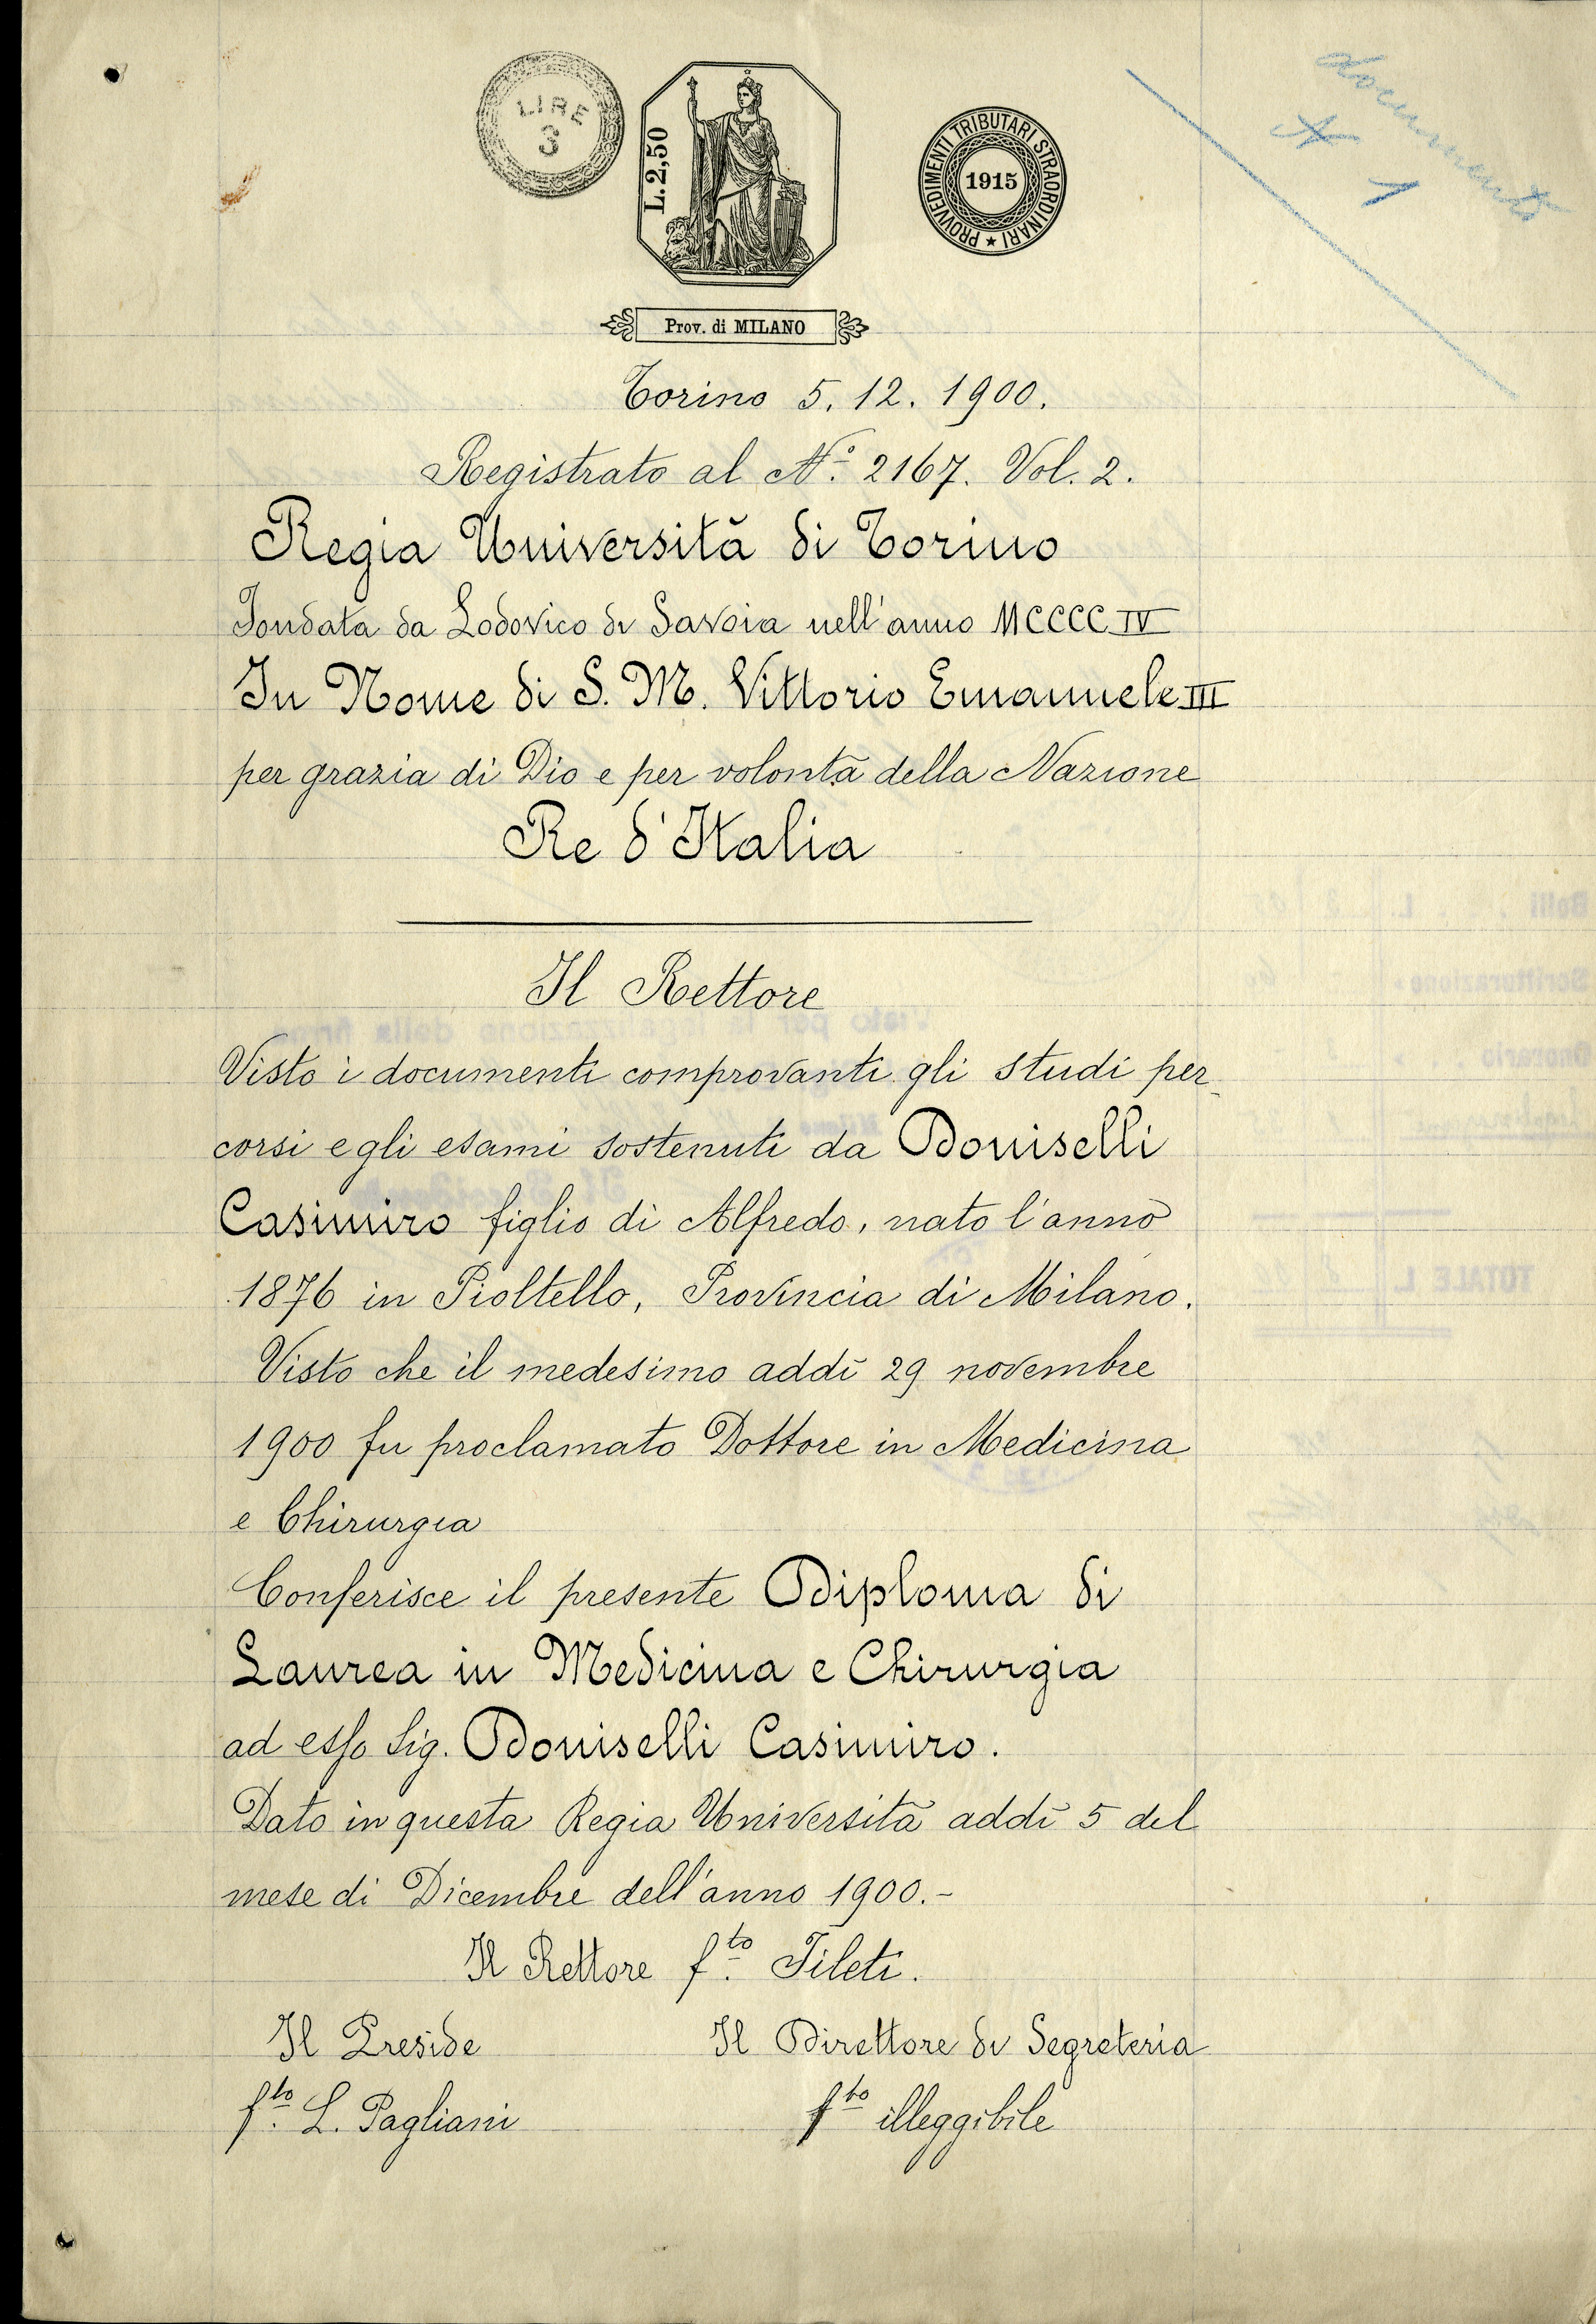 documento
N 1
LIRE
3
L. 2,50
PROVVEDIMENTI TRIBUTARI STRAORDINARI ★
1915
Prov. di MILANO
Torino 5. 12. 1900.
Registrato al N.° 2167. Vol. 2.
Regia Università di Torino
Fondata da Lodovico di Savoia nell'anno MCCCC IV
In Nome di S. M. Vittorio Emanuele III
per grazia di Dio e per volontà della Nazione
Re d'Italia
Il Rettore
Visto i documenti comprovanti gli studi per-
corsi e gli esami sostenuti da Doniselli
Casimiro figlio di Alfredo, nato l'anno
1876 in Pioltello, Provincia di Milano.
Visto che il medesimo addì 29 novembre
1900 fu proclamato Dottore in Medicina
e Chirurgia
Conferisce il presente Diploma di
Laurea in Medicina e Chirurgia
ad esso Sig. Doniselli Casimiro.
Dato in questa Regia Università addì 5 del
mese di Dicembre dell'anno 1900.-
Il Rettore f.to Fileti.
Il Preside Il Direttore di Segreteria
f.to L. Pagliani f.to illeggibile